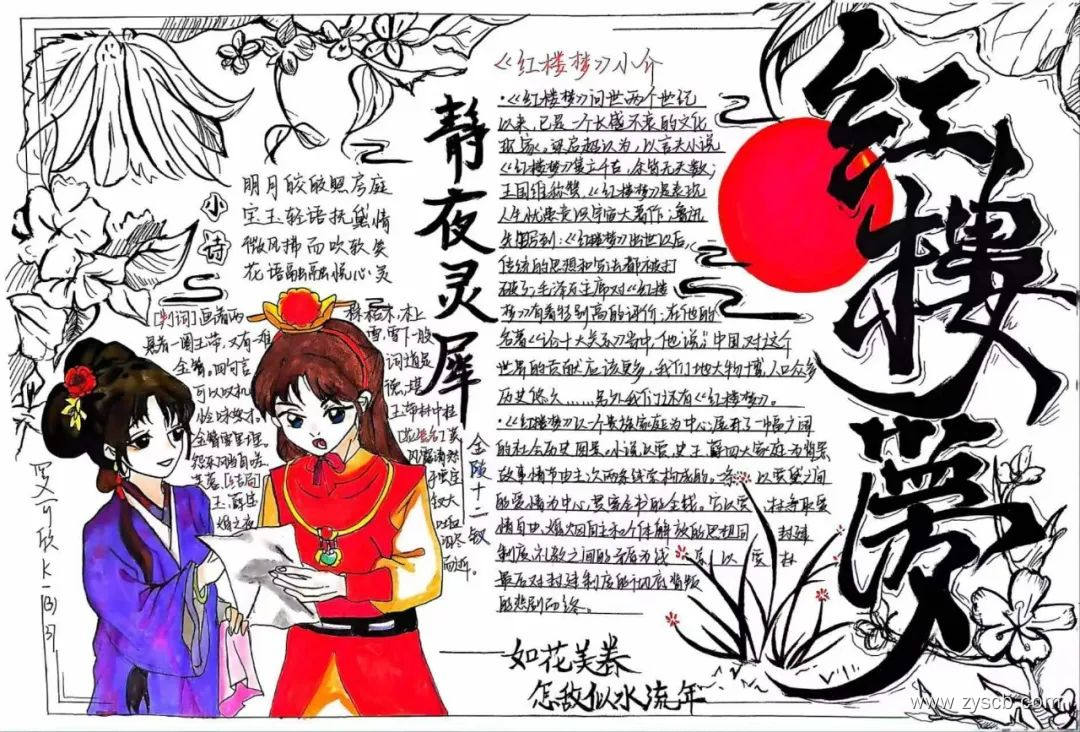 红楼梦
《红楼梦》小介
·《红楼梦》问世两个世纪
以来,已是一个长盛不衰的文化
现象。梁启超认为,以言夫小说
《红楼梦》隻立千古,余皆无足数;
王国维称赞,《红楼梦》是悲观
人生忧患意识宇宙大著作;鲁迅
先生写到:《红楼梦》出世以后,
传统的思想和写法都被打
破了;毛泽东主席对《红楼
梦》有着特别高的评价,在他的
名著《论十大关系》名中,他说:"中国对这个
世界的贡献应该更多,我们地大物博,人口众多
历史悠久……另外我们还有《红楼梦》。
·《红楼梦》以一个贵族家庭为中心,展开了一幅广阔
的社会历史图景。小说以贾、史、王、薛四大家庭为背景
故事情节由主次两条线索构成的。一条 以贾黛之间
的爱情为中心,贯穿全书的主线。它以贾 林争取爱
情自由、婚姻自主和个体解放的思想同 封建
制度、礼教之间的矛盾为线 索,以 贾 林
最后对封建制度的彻底背叛
的悲剧而终。
静夜灵犀
小诗
明月皎皎照房庭
宝玉轻语抚黛情
微风拂面吹歌笑
花语融融悦心灵
金陵十二钗
[判词]画着两 株枯木,木上
悬着一围玉带,又有一堆 雪,雪下一股
金簪,四句言 词道是
可叹停机 德,堪
怜咏絮才。 玉带林中挂
金簪雪里埋。
如花美眷
怎敌似水流年
www.zyscb.com